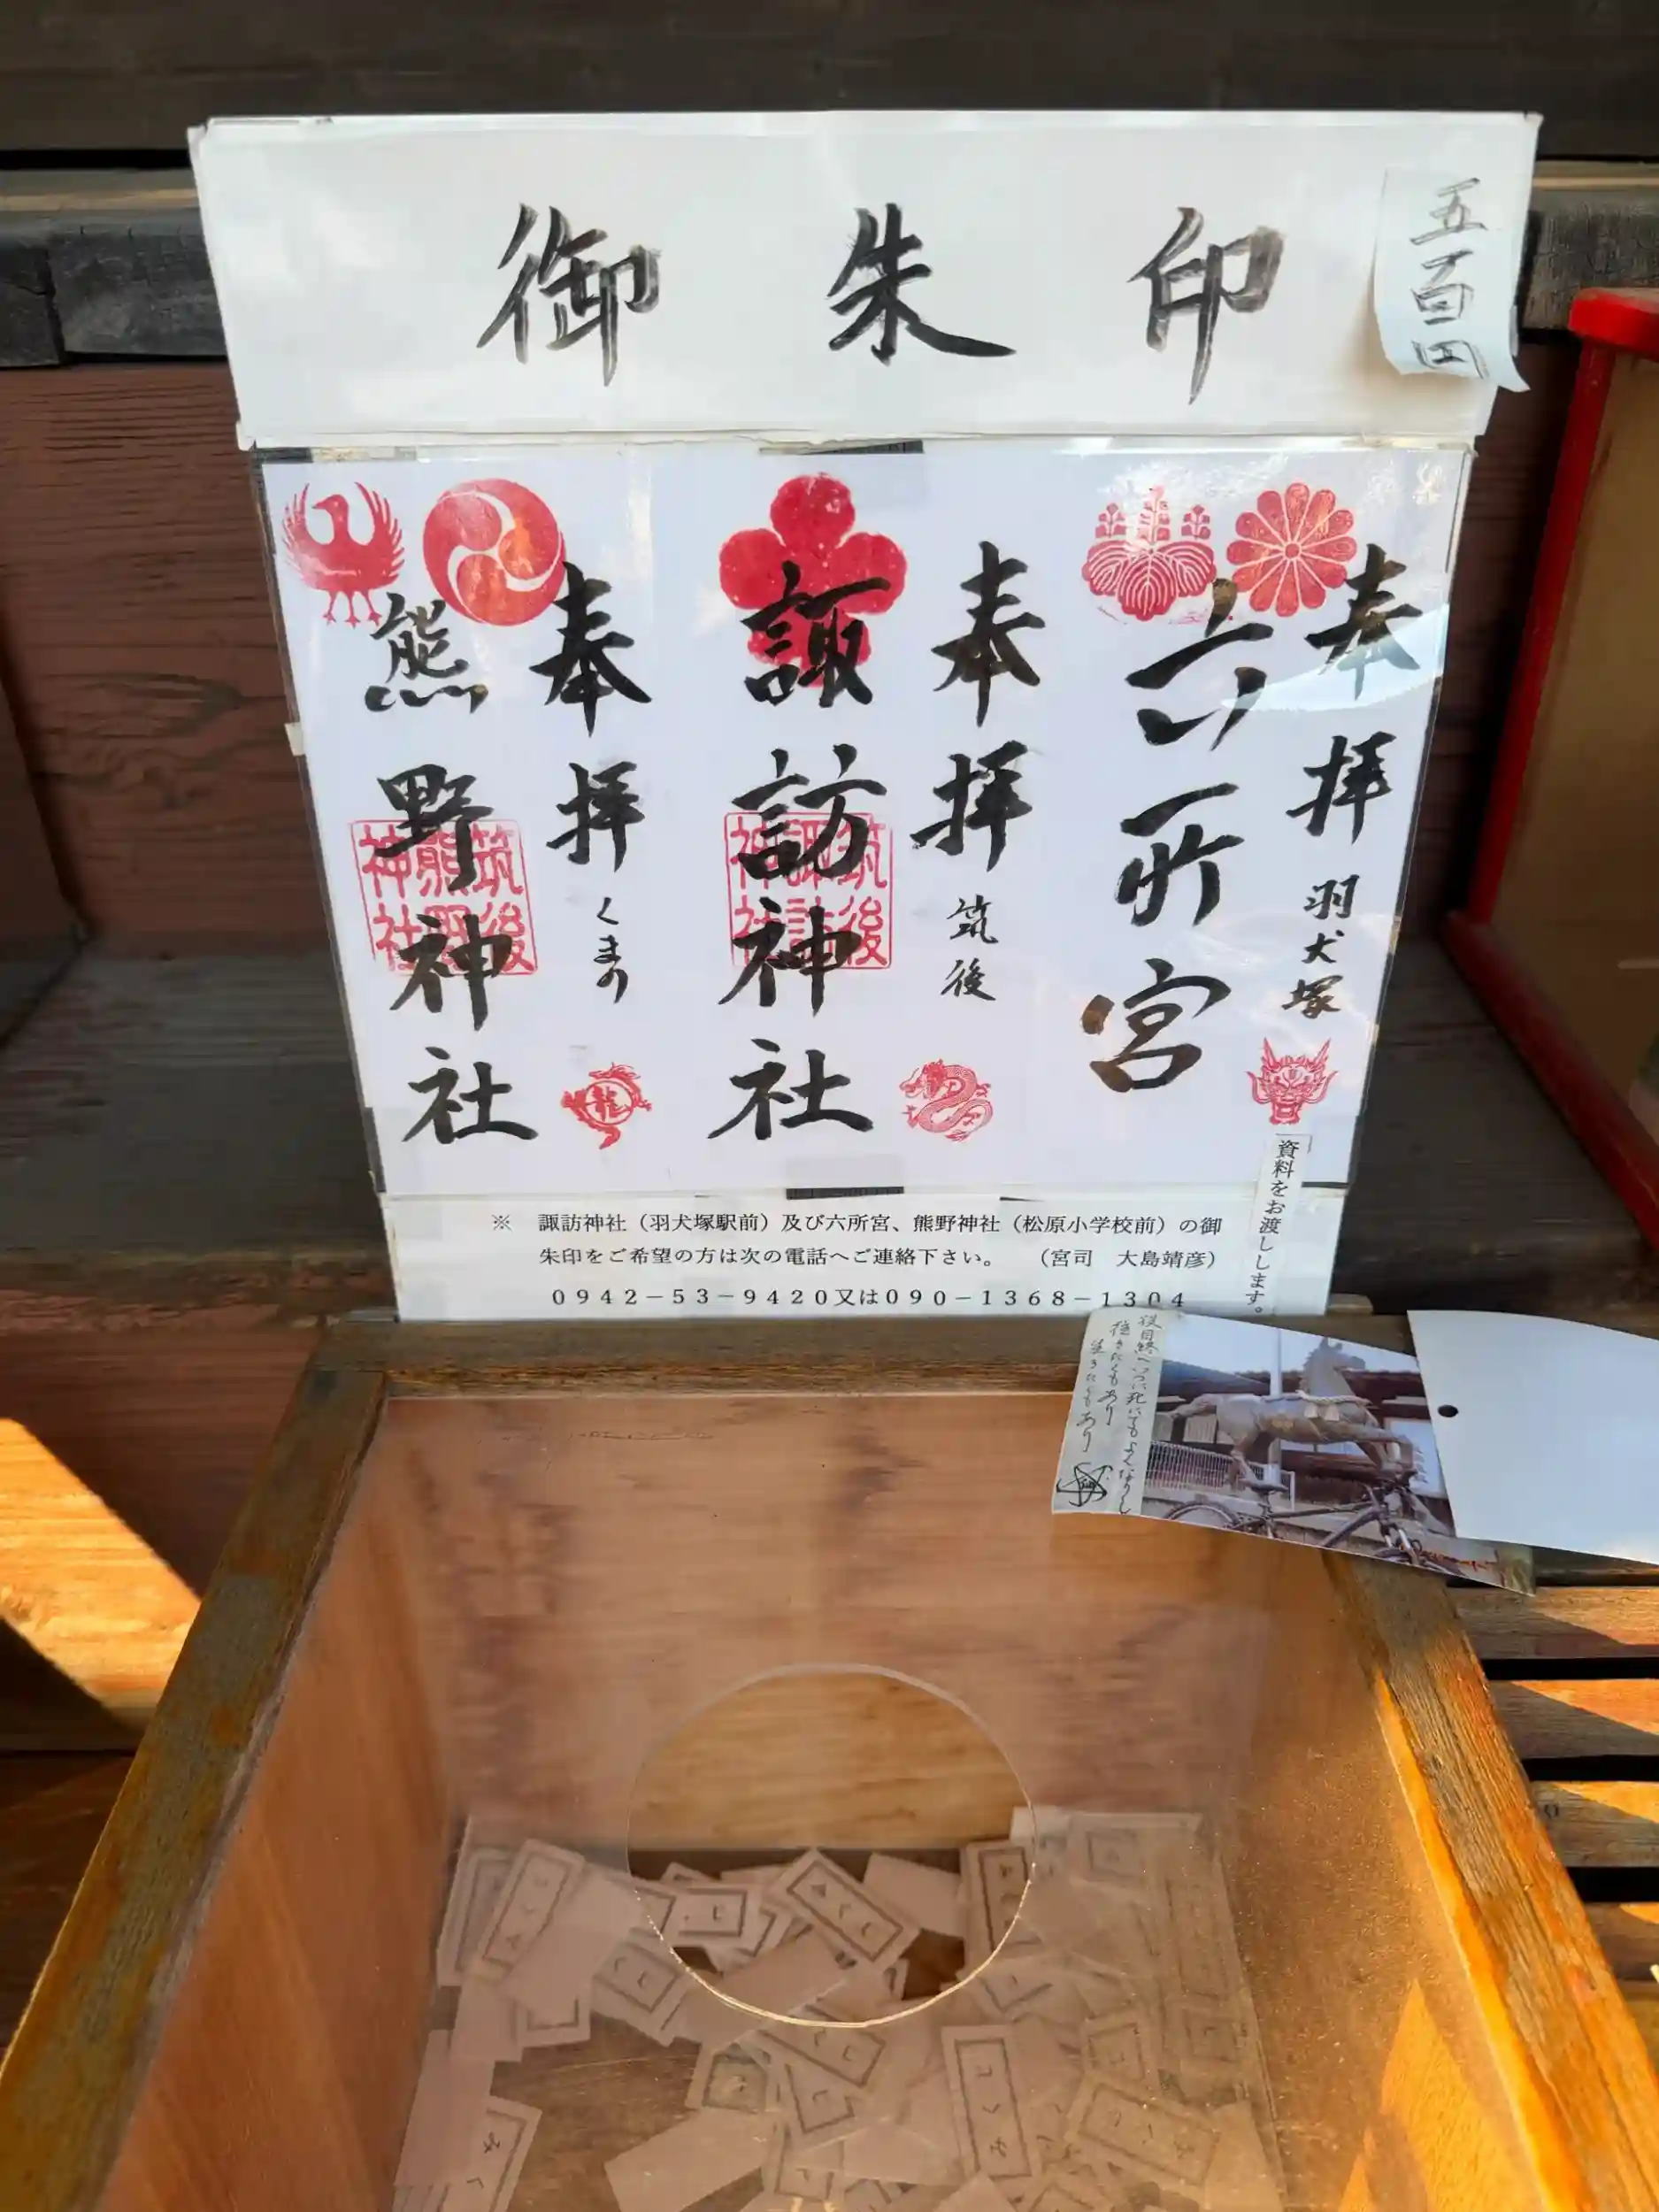 御朱印
五百円
奉拝 羽犬塚
六所宮
奉拝 筑後
諏訪神社
筑後
諏訪
神社
奉拝 くまの
熊野神社
筑後
熊野
神社
龍
資料をお渡しします。
※ 諏訪神社（羽犬塚駅前）及び六所宮、熊野神社（松原小学校前）の御
朱印をご希望の方は次の電話へご連絡下さい。 （宮司 大島靖彦）
0942－53－9420又は090－1368－1304
役目終へいつに死にてもよくなりし
生きたくもあり